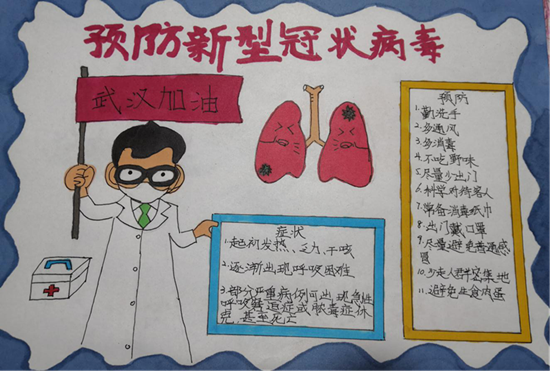 预防新型冠状病毒
武汉加油
预防
1.勤洗手
2.多通风
3.多消毒
4.不吃野味
5.尽量少出门
6.科学对待客人
7.常备消毒纸巾
8.出门戴口罩
9.尽量避免普通感
冒
10.少走人群密集地
11.避免生食肉蛋
症状
1.起初发热、乏力、干咳
2.逐渐出现呼吸困难
3.部分严重病例可出现急性
呼吸窘迫症或脓毒症休
克，甚至死亡